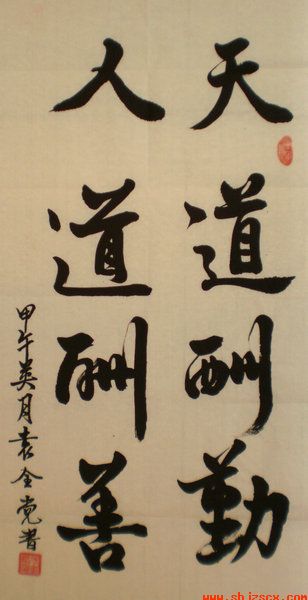 天道酬勤
人道酬善
甲午英月袁全党書
www.shjzscx.com